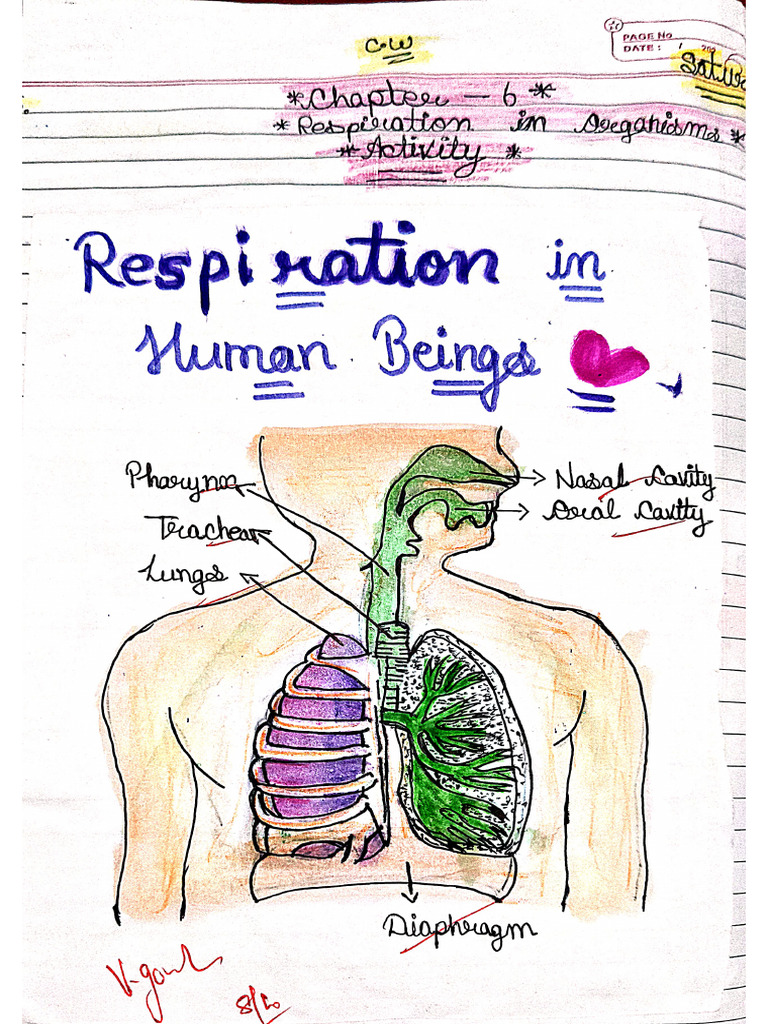 C.W
PAGE No
DATE : / 200
*Chapter - 6 *
*Respiration in Organisms *
*Activity *
Respiration in
Human Beings
Pharynx
Nasal Cavity
Trachea
Oral Cavity
Lungs
Diaphragm
V-good